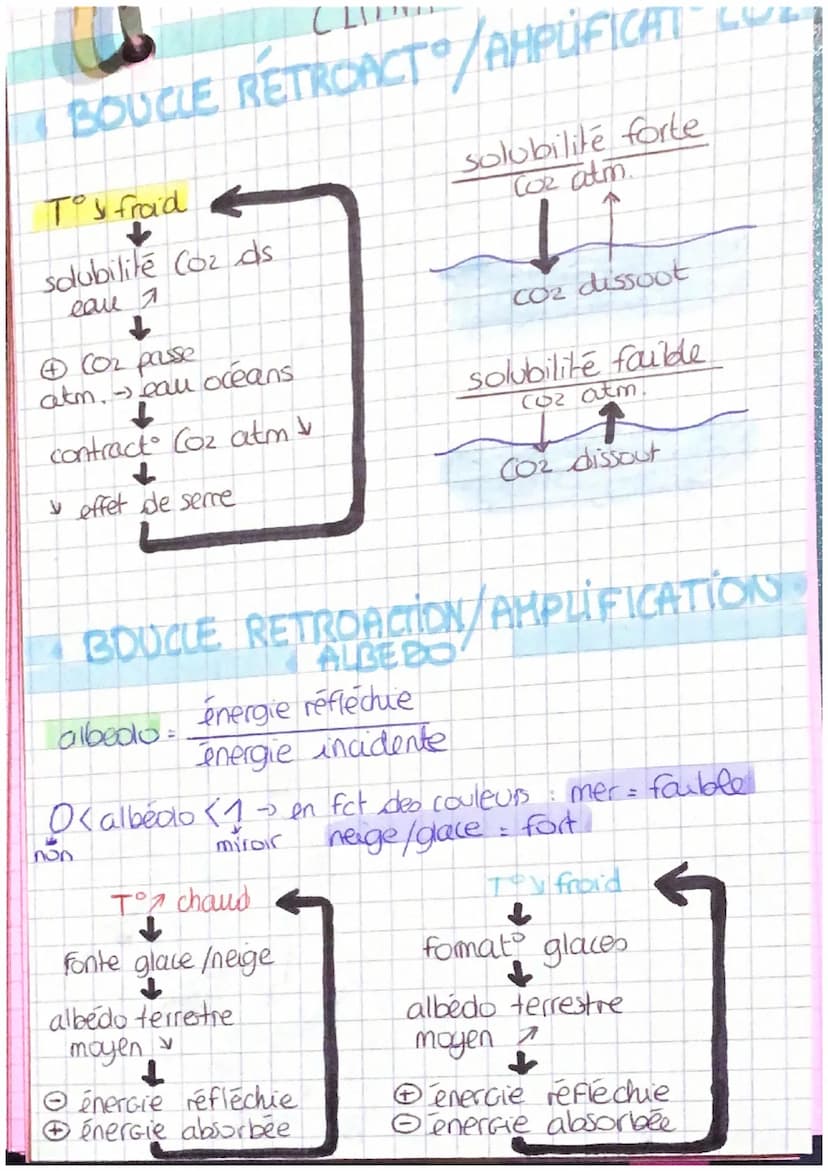 BOUCLE RÉTROACT°/AMPLIFICAT° CO2
T° ↘ froid
↓
solubilité CO2 ds
eau ↗
↓
⊕ CO2 passe
atm. → eau océans
↓
contract° CO2 atm ↘
↓
↘ effet de serre
solubilité forte
CO2 atm.
CO2 dissout
solubilité faible
CO2 atm.
CO2 dissout
BOUCLE RETROACTION/AMPLIFICATION
ALBEDO
albedo = énergie réfléchie
énergie incidente
0 < albédo < 1 → en fct des couleurs : mer = faible
miroir neige/glace = fort
T° ↗ chaud
↓
fonte glace/neige
↓
albédo terrestre
moyen ↘
↓
⊖ énergie réfléchie
⊕ énergie absorbée
T° ↘ froid
↓
format° glaces
↓
albédo terrestre
moyen ↗
↓
⊕ énergie réfléchie
⊖ énergie absorbée